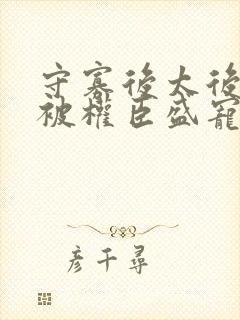 守寡後太後
被權臣盛寵
彦千尋